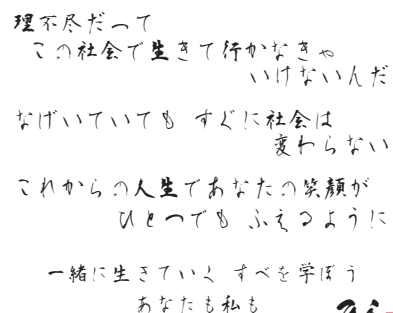 理不尽だって
この社会で生きて行かなきゃ
いけないんだ
なげいていても すぐに社会は
変わらない
これからの人生であなたの笑顔が
ひとつでも ふえるように
一緒に生きていく すべを学ぼう
あなたも私も